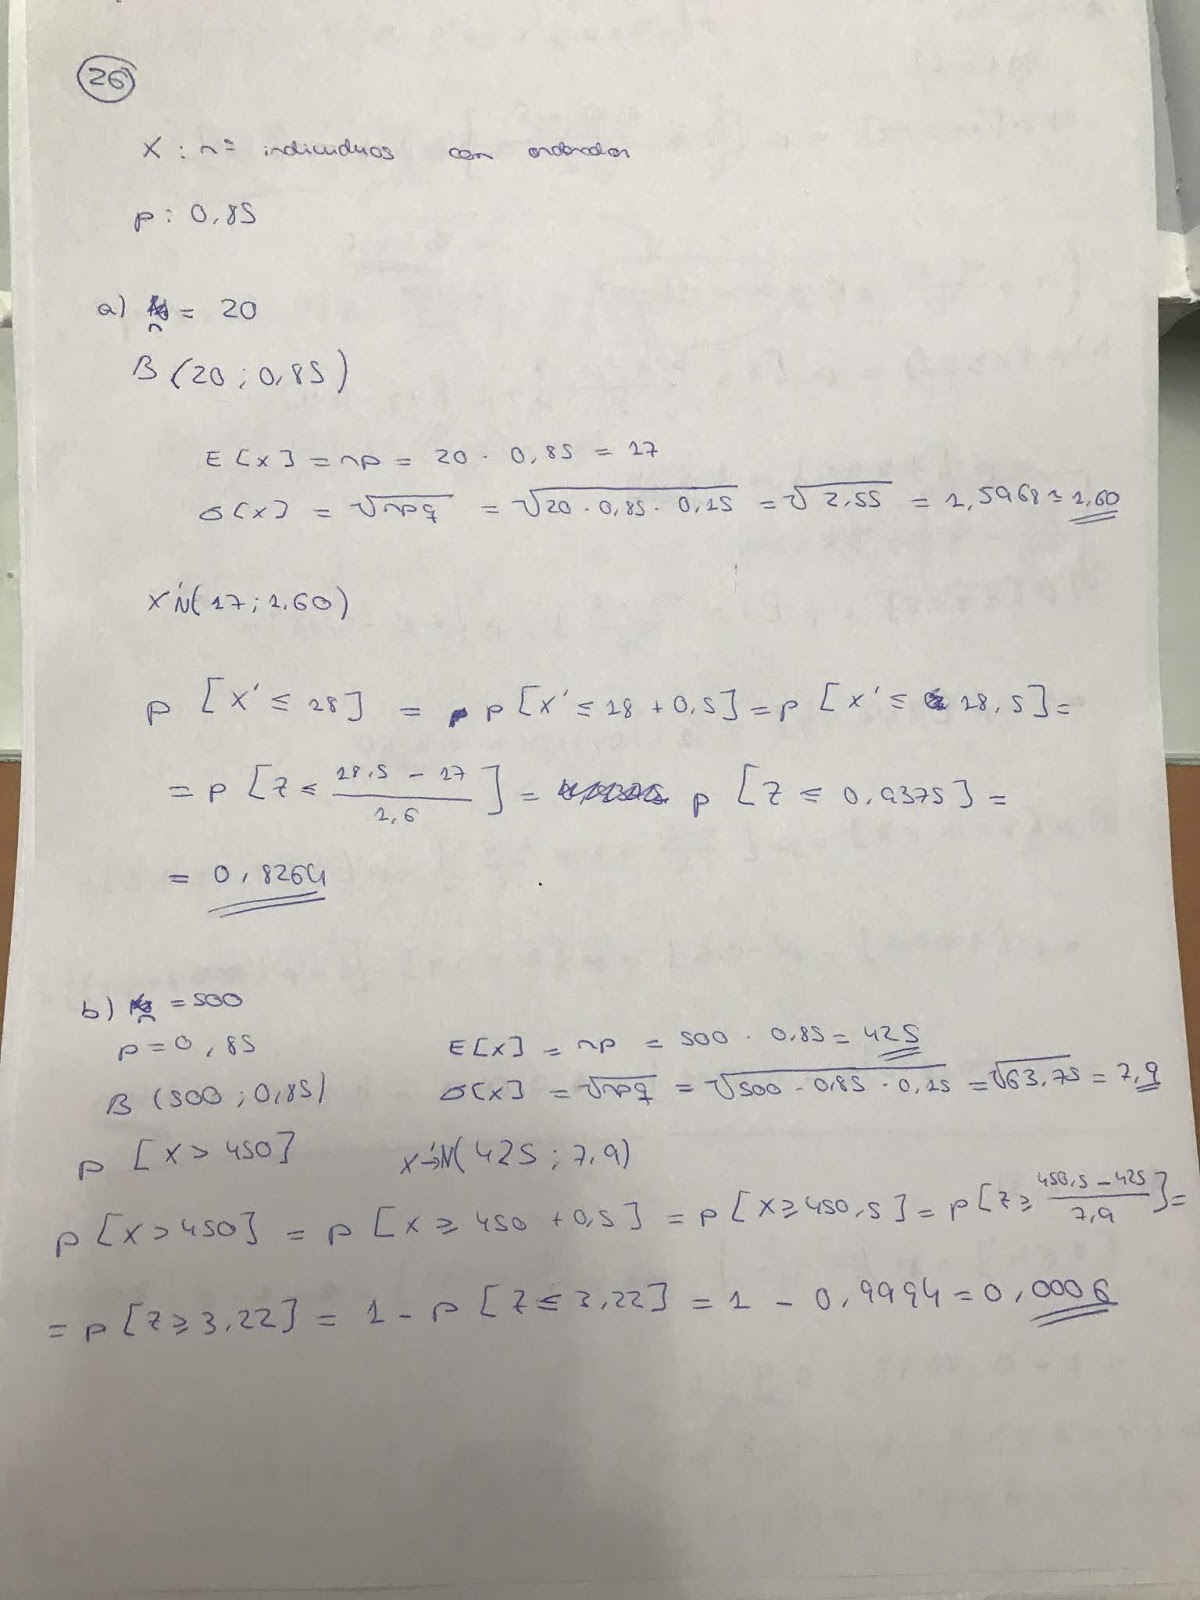 26
X : nº individuos con ordenador
p : 0,85
a) n = 20
B (20 ; 0,85)
E[x] = np = 20 · 0,85 = 17
σ[x] = √npq = √20 · 0,85 · 0,15 = √2,55 = 1,5968 ≃ 1,60
X'N(17 ; 1,60)
p [X' ≤ 18] = p [X' ≤ 18 + 0,5] = p [X' ≤ 18,5] =
= p [Z ≤ (18,5 - 17)/1,6] = p [Z ≤ 0,9375] =
= 0,8264
b) n = 500
p = 0,85
E[x] = np = 500 · 0,85 = 425
B (500 ; 0,85)
σ[x] = √npq = √500 · 0,85 · 0,15 = √63,75 = 7,9
p [X > 450]
X'→N(425 ; 7,9)
p [X > 450] = p [X ≥ 450 + 0,5] = p [X ≥ 450,5] = p [Z ≥ (450,5 - 425)/7,9] =
= p [Z ≥ 3,22] = 1 - p [Z ≤ 3,22] = 1 - 0,9994 = 0,0006